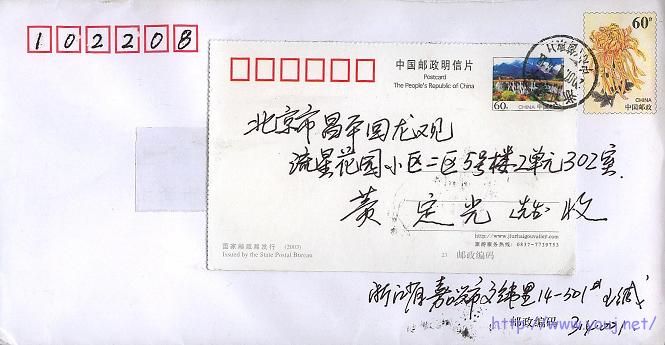 102208
60分
CHINA
中国邮政
中国邮政明信片
Postcard
The People's Republic of China
60分
CHINA
北京市昌平回龙观
流星花园小区二区5号楼2单元302室
黄定光 收
http://www.jiuzhaigouvalley.com
旅游服务热线: 0837-7739753
国家邮政局发行 (2003)
Issued by the State Postal Bureau
23
邮政编码
浙江省嘉兴市文纬里14-501
邮政编码 314001